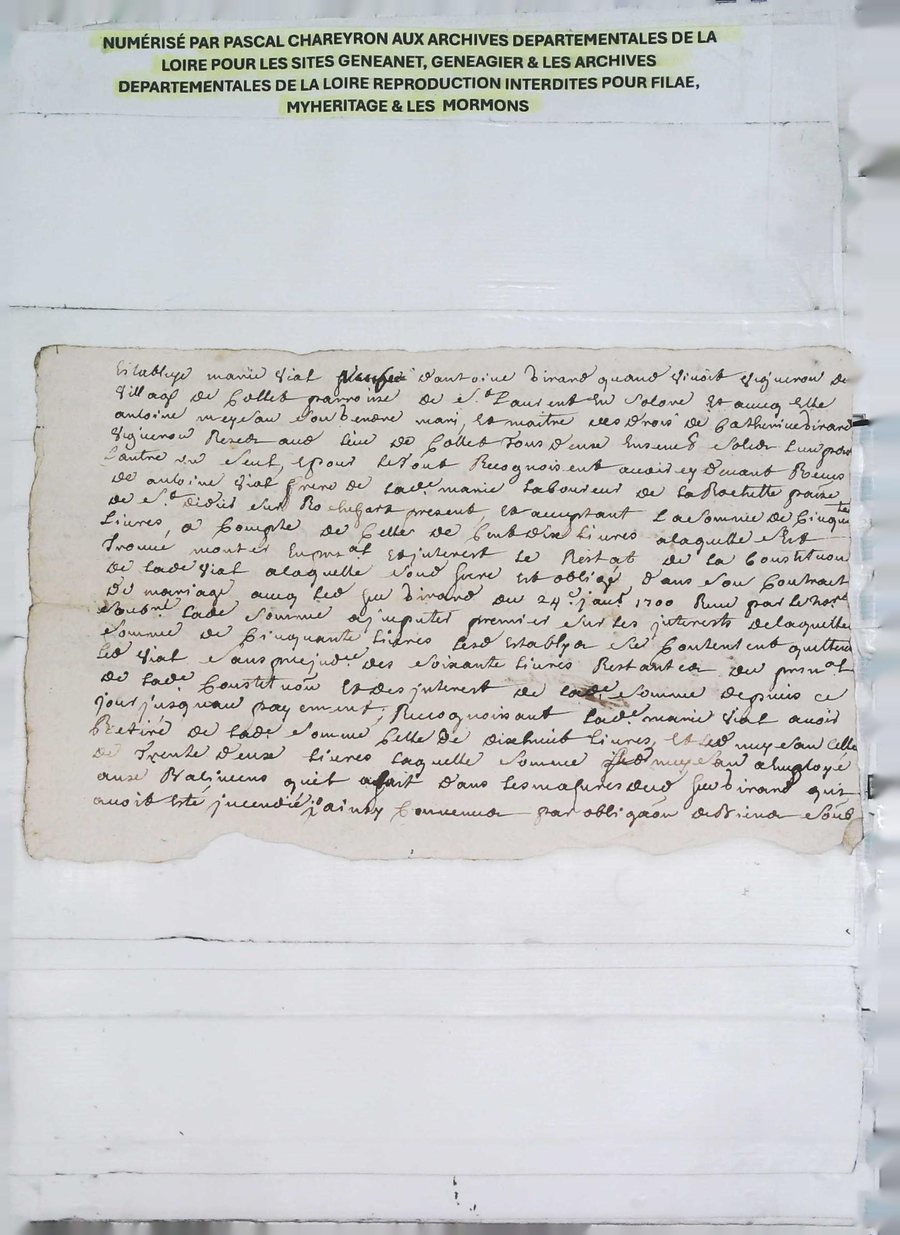 NUMÉRISÉ PAR PASCAL CHAREYRON AUX ARCHIVES DEPARTEMENTALES DE LA
LOIRE POUR LES SITES GENEANET, GENEAGIER & LES ARCHIVES
DEPARTEMENTALES DE LA LOIRE REPRODUCTION INTERDITES POUR FILAE,
MYHERITAGE & LES MORMONS
Establye marie Vial d'antoine Girard quand vivoit Vigneron du
Village de Collet parroisse de St Laurent En Solore Et avecq Elle
antoine meysan son gendre mari, Et maitre des drois de Catherine Girard
Vigneron Reset aud lieu de Collet tous deux Ensem solid Lun pour
Lautre un seul, Epour letout Recognoissent avoir cy devant Receus
de antoine Vial frere de lade marie Laboureur de la Rochette
de St didier sur Rochefort present, Et acceptant La somme de Cinqute
Livres, a Compte de Celle de Cent dix Livres alaquelle sEst
trouvé monter En Et interest Le Restat de la Constituon
de lade Vial alaquelle sond frere Est obligé, dans son Contract
de mariage avecq led feu Girard du 24e janv 1700 Receu par le nore
soubné lade somme ajmputer premier sur les jnterests delaquelle
somme de Cinquante Livres lesd Establys se Contentent quittent
led Vial sans prejudce des soixante Livres Restantes du
de lade Constituon Et des jnterest de lade somme depuis ce
jour jusqueau payement, Recognoissant lade marie Vial avoir
Retiré de lade somme Celle de dixhuit Livres, Et led meysan Celle
de Trente deux Livres laquelle somme led meysan a Employé
aux quil a fait dans les masures dud feu Girard qui
avoit Esté jncendié ainsy Convenu par obligaon de Biens soub